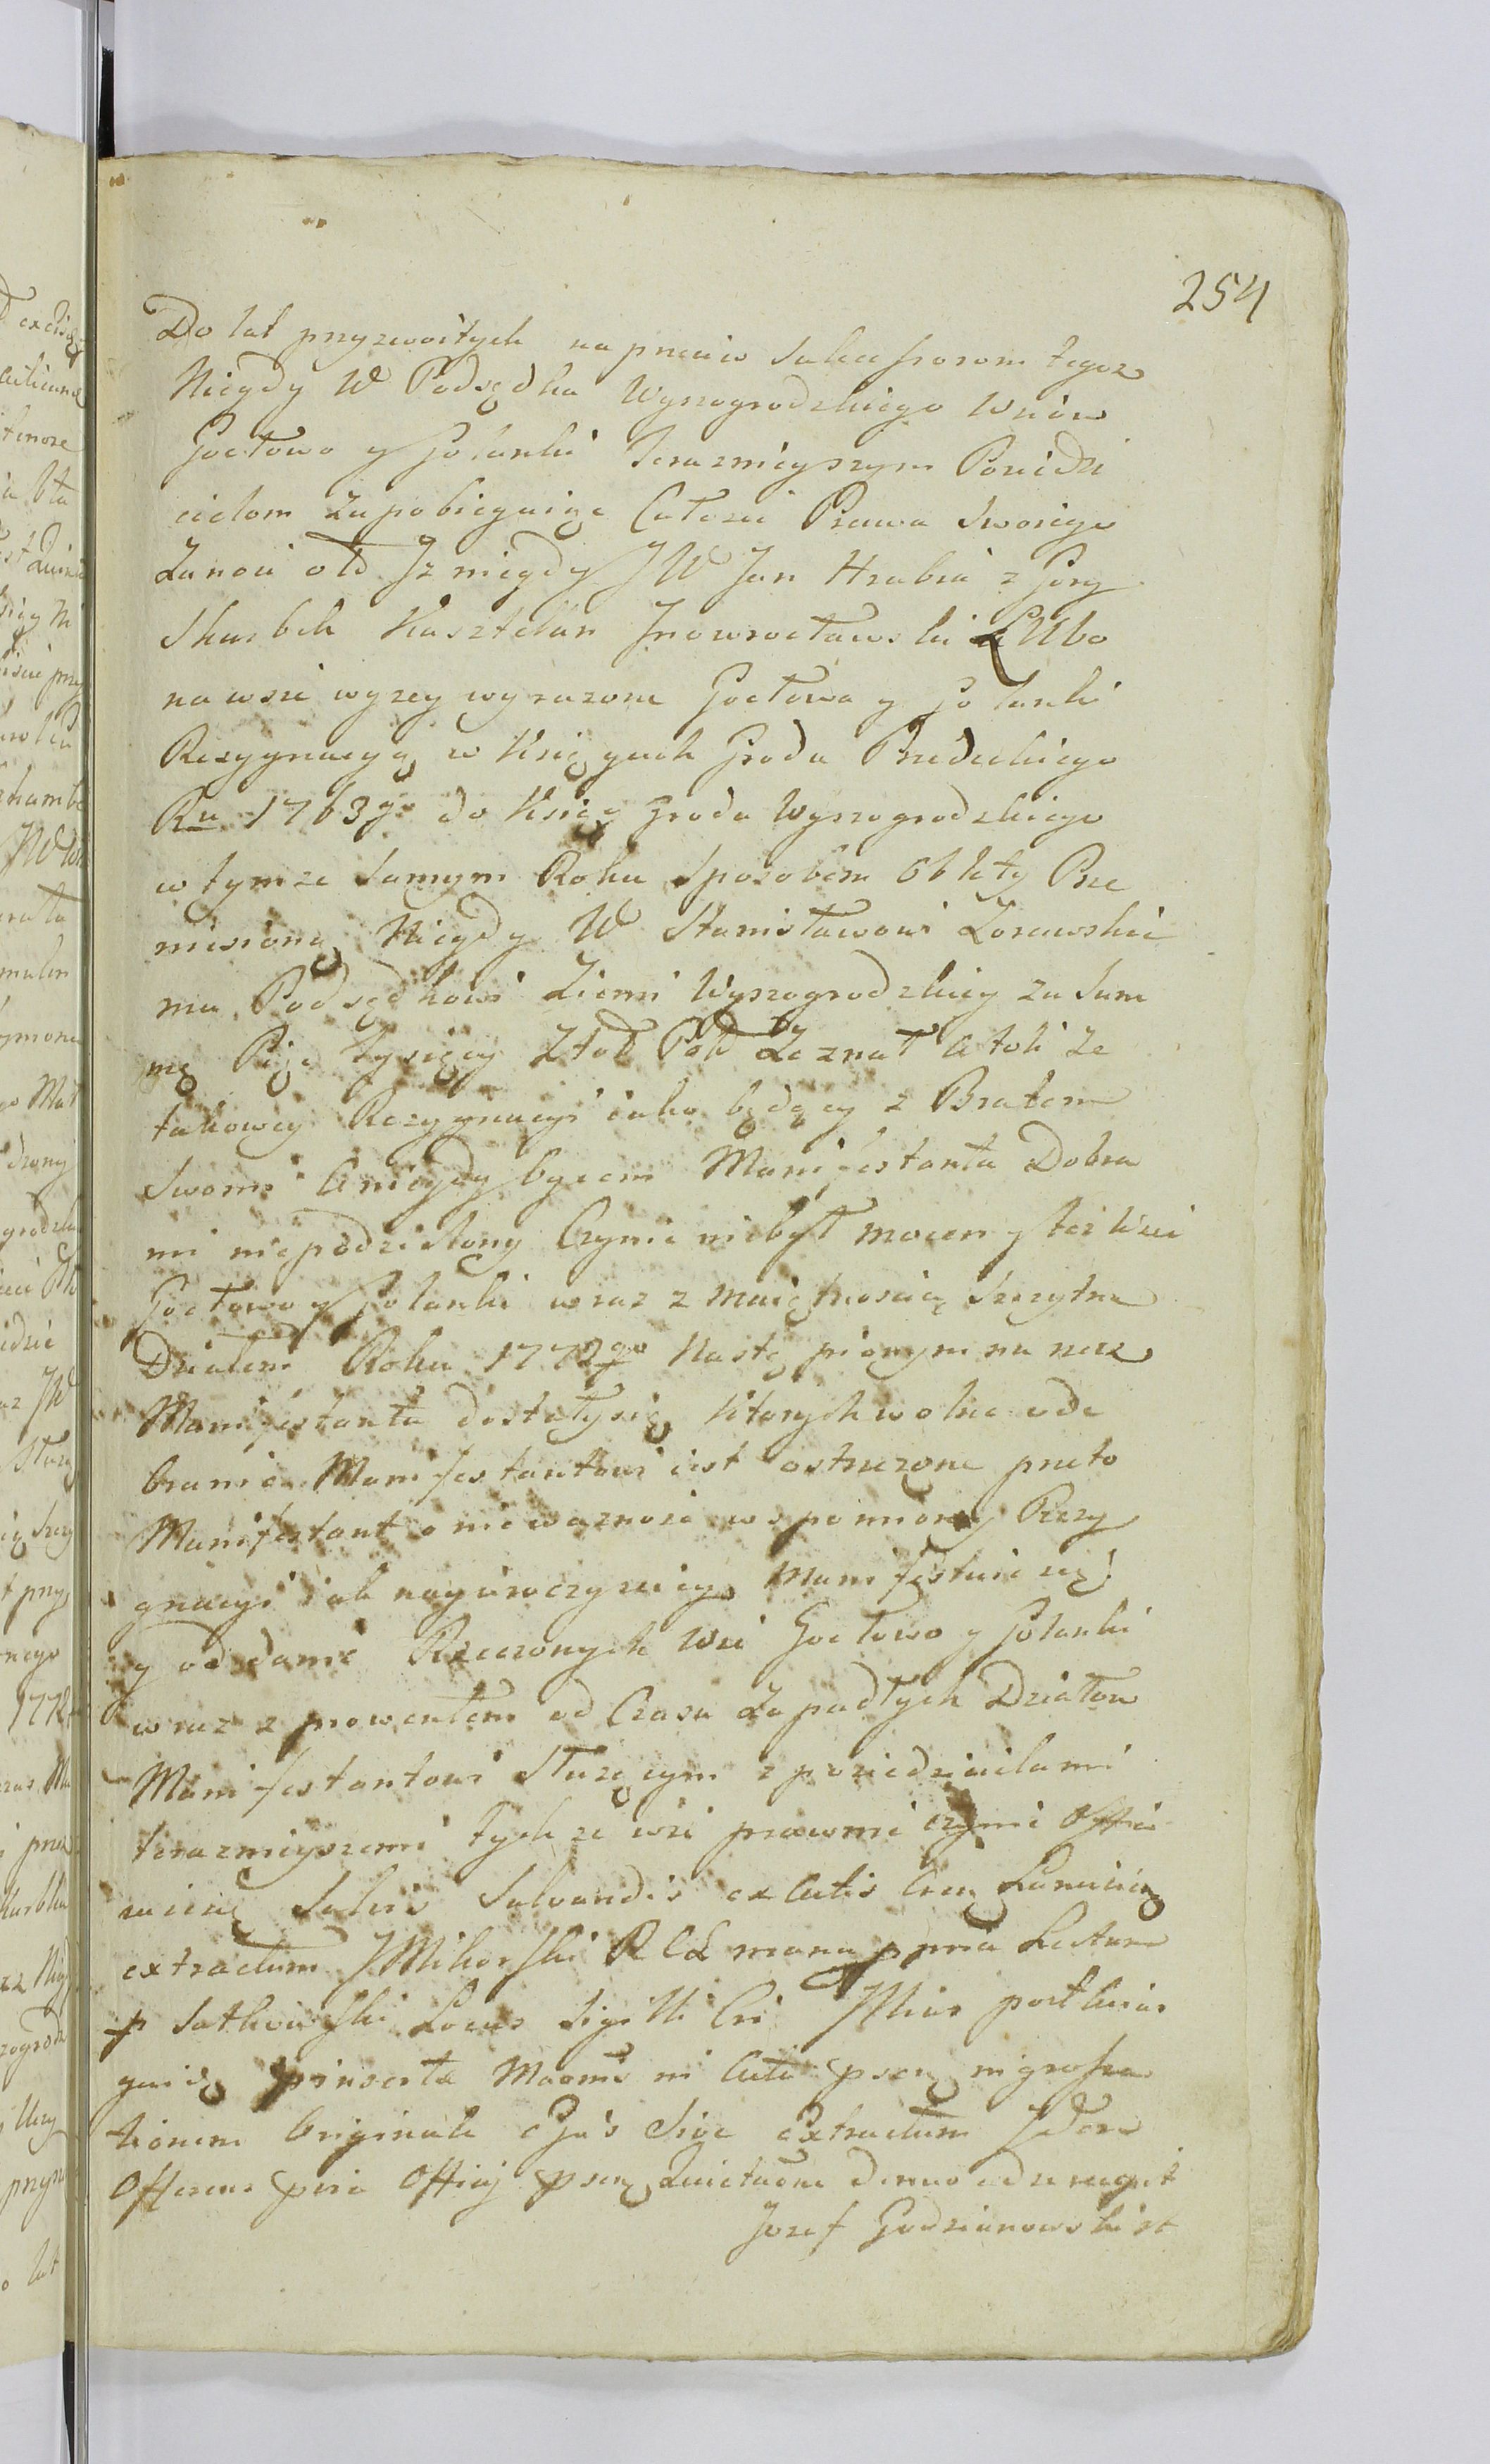 254
Do lat przyzwoitych naprzeciw Sukcessorom tegoz
Niegdy W Podsędka Wyszogrodzkiego Wsiow
Goćtowo y Golanki Terazmieyszym Posiedzi
cielom Zapobiegaiąc Całosci Prawa Swoiego
Zanosi otd Iz niegdy JW Jan Hrabia z Gory
Skarbek Kasztelan Jnowrocławski Lubo
na wsie wyzey wyrazone Goctowa y Golanki
Rezygnacyą w Księgach Grodu Przedeckiego
Ru 1763g do Księg Grodu Wyszogrodzkiego
w tymze Samym Roku Sposobem Oblaty Prze
niesioną Niegdy W Stanisławowi Zorawskie
mu Podsędkowi Ziemi Wyszogrodzkiey za Sum
mę Pięc tysięcy Złot Pol Zeznał Atoli ze
takowey Rezygnacyi iako będący z Bratem
Swoim A niegdy Oycem Manifestanta Dobra
mi niepodzielony Czynic niebył mocen y też Wsi
Goctowo y Golanki wraz z maiętnoscią Szczytno
Działem Roku 1772go Nastąpionym na rzecz
Manifestanta dostały się Ktorych wolne ode
branie Manifestantowi iest ostrzezone przeto
Manifestant o niewaznosc wspomnioney Rezy
gnacyi iak nayuroczysciey Manifestuie się
y oddanie Rzeczonych Wsi Goctowo y Golanki
wraz z prowentem od Czasu Zapadłych Działow
Manifestantowi Słuzącym z posiedzicielami
terazmieyszemi tychze wsi prawnie czynic Offia
ruie się Salvis Salvandis ex Actis
extractum JMikorski R C mana ppria Lectum
p Satkowski Locus Sigilli Cri Post
pinserta
tionem Originale Sive Extractum Idem
Offerens Offij psen denuo
Jozef Godzianowski mp